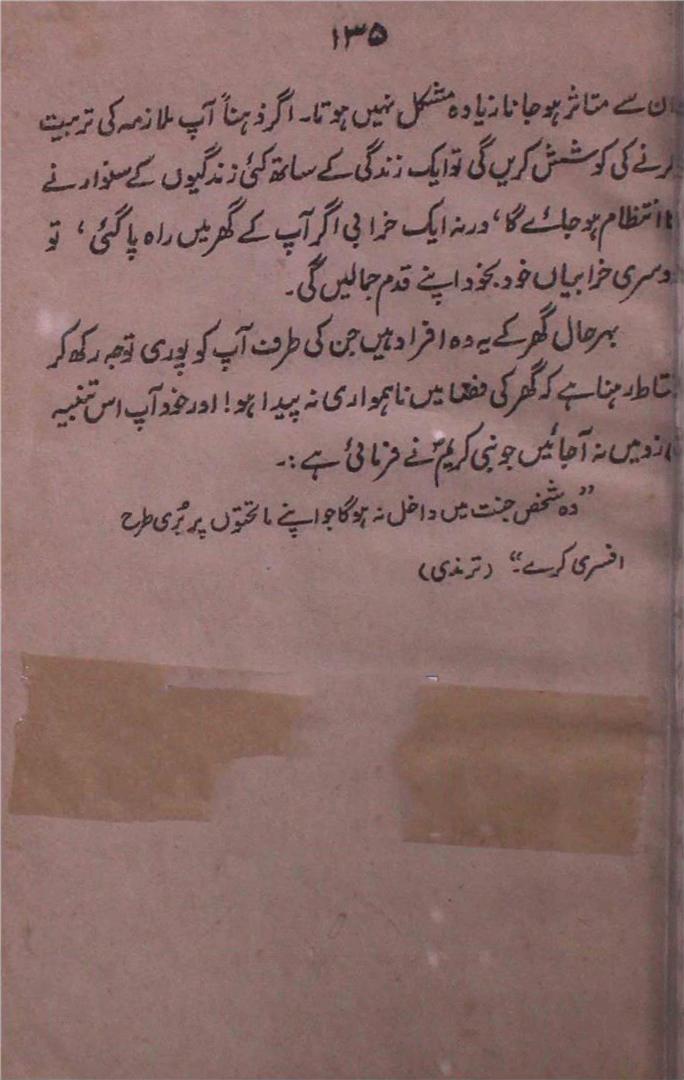 ۱۳۵
ان سے متاثر ہوجانا زیادہ مشکل نہیں ہوتا۔ اگر ذہناً آپ ملازمہ کی تربیت
کرنے کی کوشش کریں گی تو ایک زندگی کے ساتھ کئی زندگیوں کے سنوارنے
کا انتظام ہو جائے گا، ورنہ ایک خرابی اگر آپ کے گھر میں راہ پا گئی، تو
دوسری خرابیاں خود بخود اپنے قدم جمالیں گی۔
بہر حال گھر کے یہ وہ افراد ہیں جن کی طرف آپ کو پوری توجہ رکھ کر
محتاط رہنا ہے کہ گھر کی فضا میں ناہمواری نہ پیدا ہو! اور خود آپ اس تنبیہ
زد میں نہ آجائیں جو نبی کریمؐ نے فرمائی ہے:۔
”وہ شخص جنت میں داخل نہ ہوگا جو اپنے ماتحتوں پر بُری طرح
افسری کرے۔“ (ترمذی)